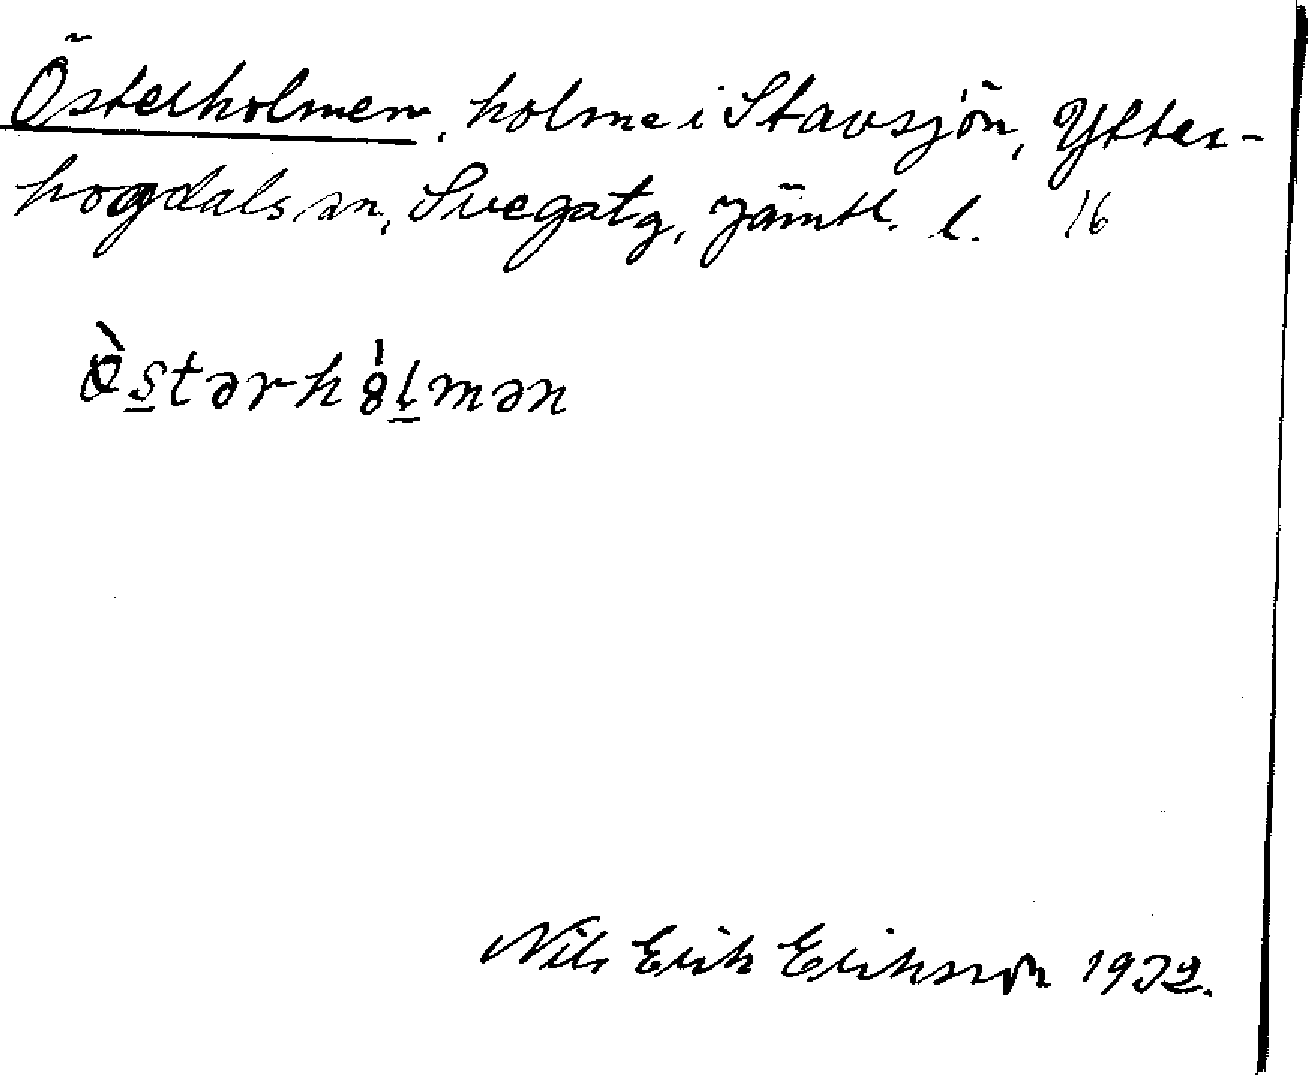 Österholmen, holme i Stavsjön, Ytter-
hogdals sn, Svegs tg, Jämtl. l. 16
Ö̀stərhȯ́lmən
Nils Erik Eriksson 1932.